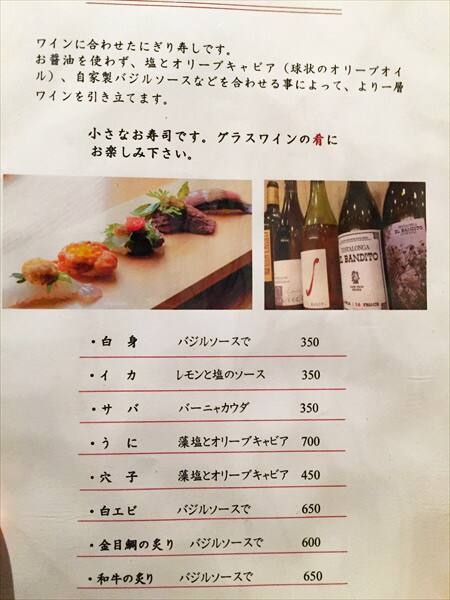 ワインに合わせたにぎり寿しです。
お醤油を使わず、塩とオリーブキャビア（球状のオリーブオイ
ル）、自家製バジルソースなどを合わせる事によって、より一層
ワインを引き立てます。
小さなお寿司です。グラスワインの肴に
お楽しみ下さい。
TESTALONGA
EL BANDITO
EL BANDITO
・白　身　バジルソースで　350
・イ　カ　レモンと塩のソース　350
・サ　バ　バーニャカウダ　350
・う　に　藻塩とオリーブキャビア　700
・穴　子　藻塩とオリーブキャビア　450
・白エビ　バジルソースで　650
・金目鯛の炙り　バジルソースで　600
・和牛の炙り　バジルソースで　650